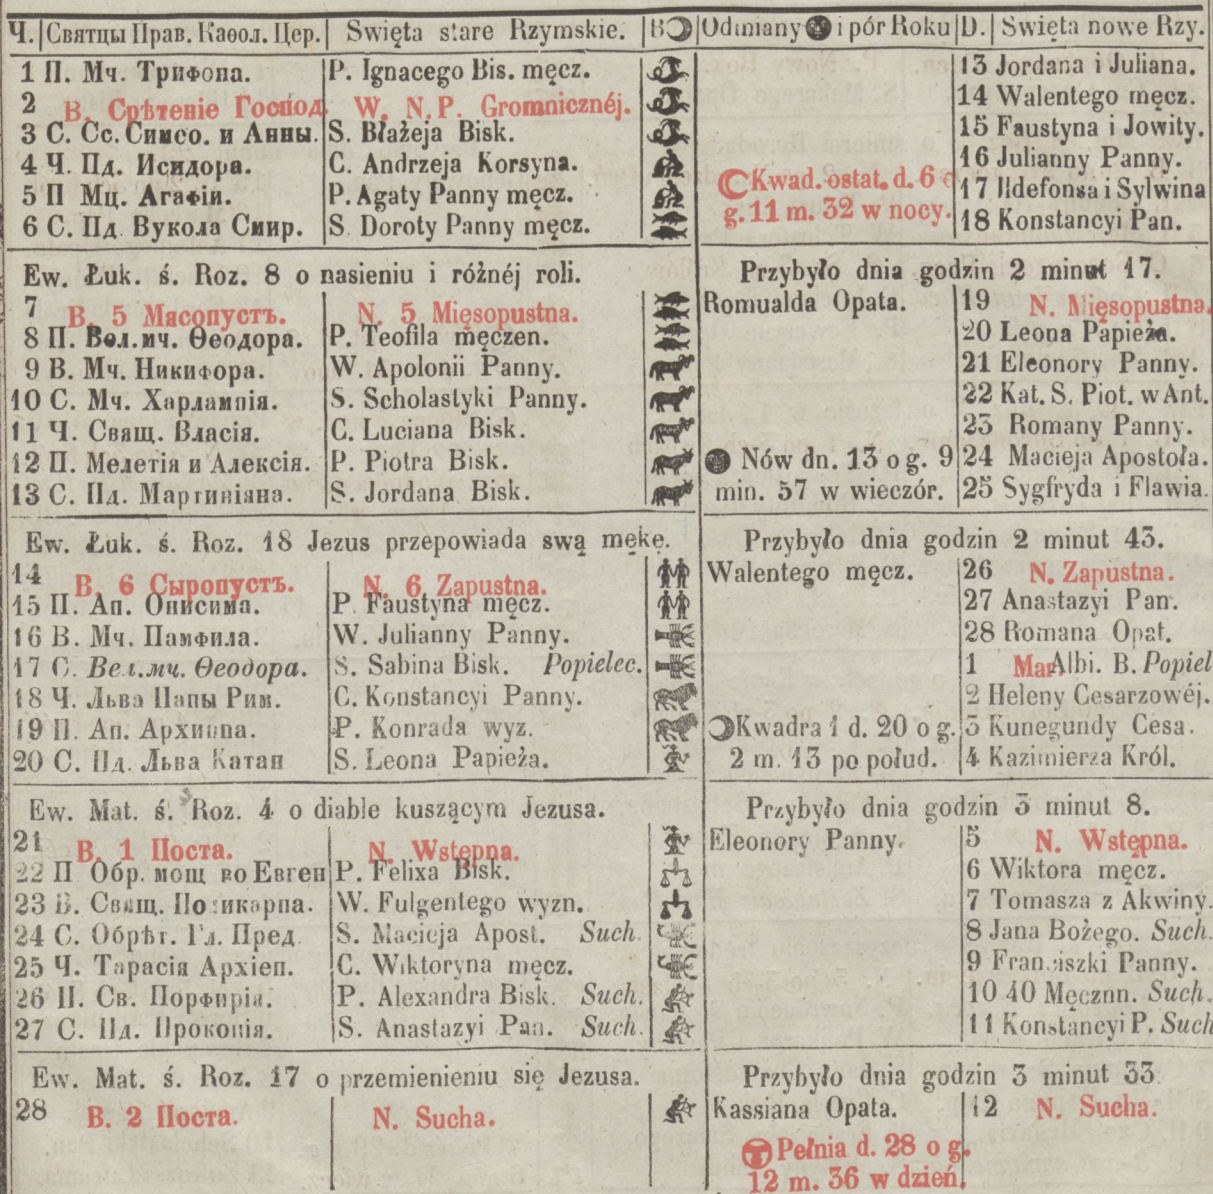 Ч. Святцы Прав. Каѳол. Цер. Święta stare Rzymskie. B Odmiany i pór Roku D. Święta nowe Rzy.
1 П. Мч. Трифона. P. Ignacego Bis. męcz. 13 Jordana i Juliana.
2 В. Срѣтеніе Господ. W. N. P. Gromnicznéj. 14 Walentego męcz.
3 С. Сс. Симео. и Анны. S. Błażeja Bisk. 15 Faustyna i Jowity.
4 Ч. Пд. Исидора. C. Andrzeja Korsyna. 16 Julianny Panny.
5 П Мц. Агафіи. P. Agaty Panny męcz. Kwad. ostat. d. 6 o 17 Ildefonsa i Sylwina
6 С. Пд. Вукола Смир. S. Doroty Panny męcz. g. 11 m. 32 w nocy. 18 Konstancyi Pan.
Ew. Łuk. ś. Roz. 8 o nasieniu i różnéj roli. Przybyło dnia godzin 2 minut 17.
7 В. 5 Мясопустъ. N. 5 Mięsopustna. Romualda Opata. 19 N. Mięsopustna.
8 П. Вел.мч. Ѳеодора. P. Teofila męczen. 20 Leona Papieża.
9 В. Мч. Никифора. W. Apolonii Panny. 21 Eleonory Panny.
10 С. Мч. Харлампія. S. Scholastyki Panny. 22 Kat. S. Piot. w Ant.
11 Ч. Свящ. Власія. C. Luciana Bisk. 23 Romany Panny.
12 П. Мелетія и Алексія. P. Piotra Bisk. Nów dn. 13 o g. 9 24 Macieja Apostoła.
13 С. Пд. Мартиніана. S. Jordana Bisk. min. 57 w wieczór. 25 Sygfryda i Flawia.
Ew. Łuk. ś. Roz. 18 Jezus przepowiada swą mękę. Przybyło dnia godzin 2 minut 43.
14 В. 6 Сыропустъ. N. 6 Zapustna. Walentego męcz. 26 N. Zapustna.
15 П. Ап. Онисима. P. Faustyna męcz. 27 Anastazyi Pan.
16 В. Мч. Памфила. W. Julianny Panny. 28 Romana Opat.
17 С. Вел.мч. Ѳеодора. S. Sabina Bisk. Popielec. 1 Mar Albi. B. Popiel
18 Ч. Льва Папы Рим. C. Konstancyi Panny. 2 Heleny Cesarzowéj.
19 П. Ап. Архиппа. P. Konrada wyz. Kwadra 1 d. 20 o g. 3 Kunegundy Cesa.
20 С. Пд. Льва Катан S. Leona Papieża. 2 m. 13 po połud. 4 Kazimierza Król.
Ew. Mat. ś. Roz. 4 o diable kuszącym Jezusa. Przybyło dnia godzin 3 minut 8.
21 В. 1 Поста. N. Wstępna. Eleonory Panny. 5 N. Wstępna.
22 П Обр. мощ во Евген P. Felixa Bisk. 6 Wiktora męcz.
23 В. Свящ. Поликарпа. W. Fulgentego wyzn. 7 Tomasza z Akwiny.
24 С. Обрѣт. Гл. Пред S. Macieja Apost. Such. 8 Jana Bożego. Such.
25 Ч. Тарасія Архіеп. C. Wiktoryna męcz. 9 Franciszki Panny.
26 П. Св. Порфирія. P. Alexandra Bisk. Such. 10 40 Męcznn. Such.
27 С. Пд. Прокопія. S. Anastazyi Pan. Such. 11 Konstancyi P. Such
Ew. Mat. ś. Roz. 17 o przemienieniu się Jezusa. Przybyło dnia godzin 3 minut 33.
28 В. 2 Поста. N. Sucha. Kassiana Opata. 12 N. Sucha.
Pełnia d. 28 o g.
12 m. 36 w dzień.